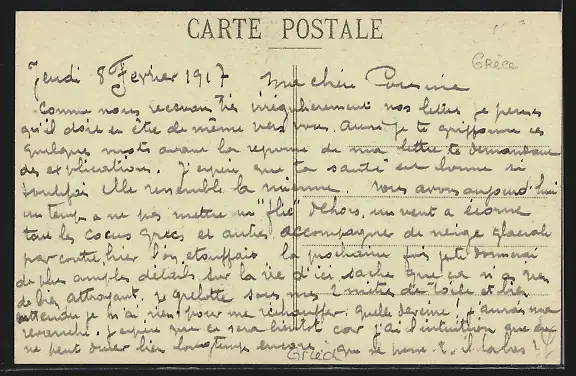 CARTE POSTALE
Grèce
Jeudi 8 Fevrier 1917 Ma chère Cousine
Comme nous recevons très irrégulièrement nos lettres je pense
qu'il doit en être de même vers vous. Aussi je te griffonne ces
quelques mots avant la reprise de ma lettre te demandant
des explications. J'espère que ta santé est bonne si
toutefois elle ressemble la mienne. Nous avons aujourd'hui
un temps a ne pas mettre un "flic" dehors, un vent a écorner
tous les cocus grecs et autres accompagner de neige glaciale
par contre hier l'on etouffais la prochaine fois je te donnerai
de plus amples détails sur la vie d'ici sache que ça n'a rien
de bien attrayant. je grelotte sous mes 2 mètres de toile et bien
attendu je n'ai rien pour me réchauffer. quelle deveine! j'aurai ma
revanche. J'espère que ce sera bientôt car j'ai l'intuition que
ne peut durer bien longtemps encore. que se passe-t-il labas?
Grèce